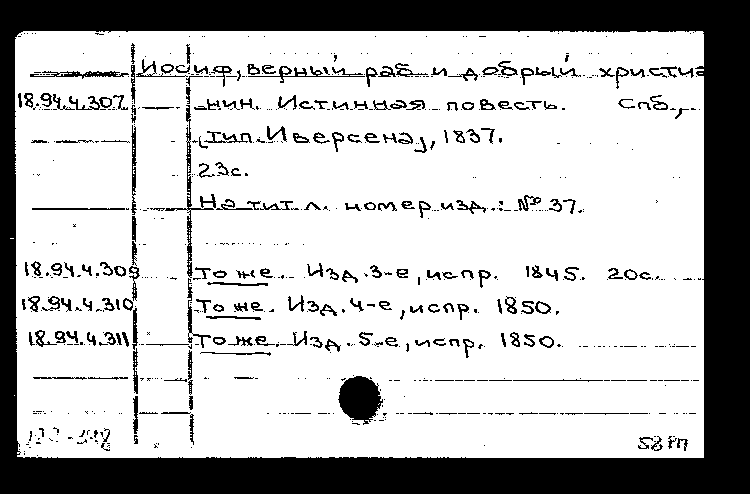 Иосиф, верный раб и добрый христиа
18.94.4.307 нин. Истинная повесть. Спб.,
[тип. Иверсена], 1837.
23с.
На тит. л. номер изд.: № 37.
18.94.4.309 То же. Изд. 3-е, испр. 1845. 20с.
18.94.4.310 То же. Изд. 4-е, испр. 1850.
18.94.4.311 То же. Изд. 5-е, испр. 1850.
58 РП